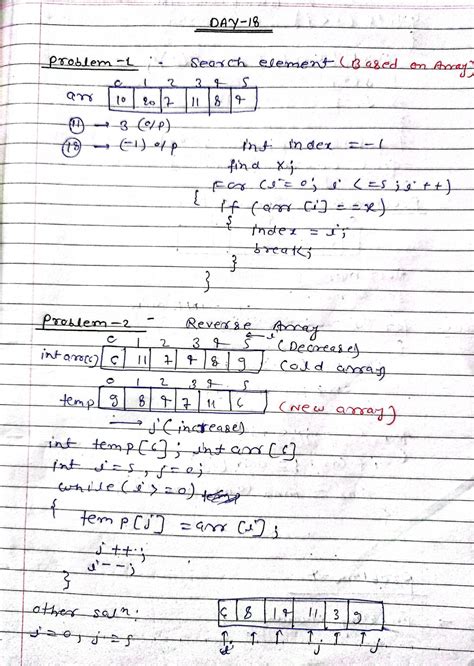 DAY-18
Problem-1 :- Search element (Based on Array)
0 1 2 3 4 5
arr 10 20 7 11 8 4
11 → 3 (o/p)
18 → (-1) o/p int index = -1
find x;
for (i=0; i<=5; i++)
{ if (arr[i]==x)
{ index = i;
break;
}
}
Problem-2 - Reverse Array
0 1 2 3 4 5 ← i (Decrease)
int arr(6) 6 11 7 4 8 9 (old array)
0 1 2 3 4 5
temp 9 8 4 7 11 6 (new array)
→ j (increase)
int temp[6]; int arr[6]
int i=5, j=0;
while (i>=0)
{ temp[j] = arr[i];
j++;
i--;
}
6 8 14 11 3 9
other soln:
i=0, j=5 i j j